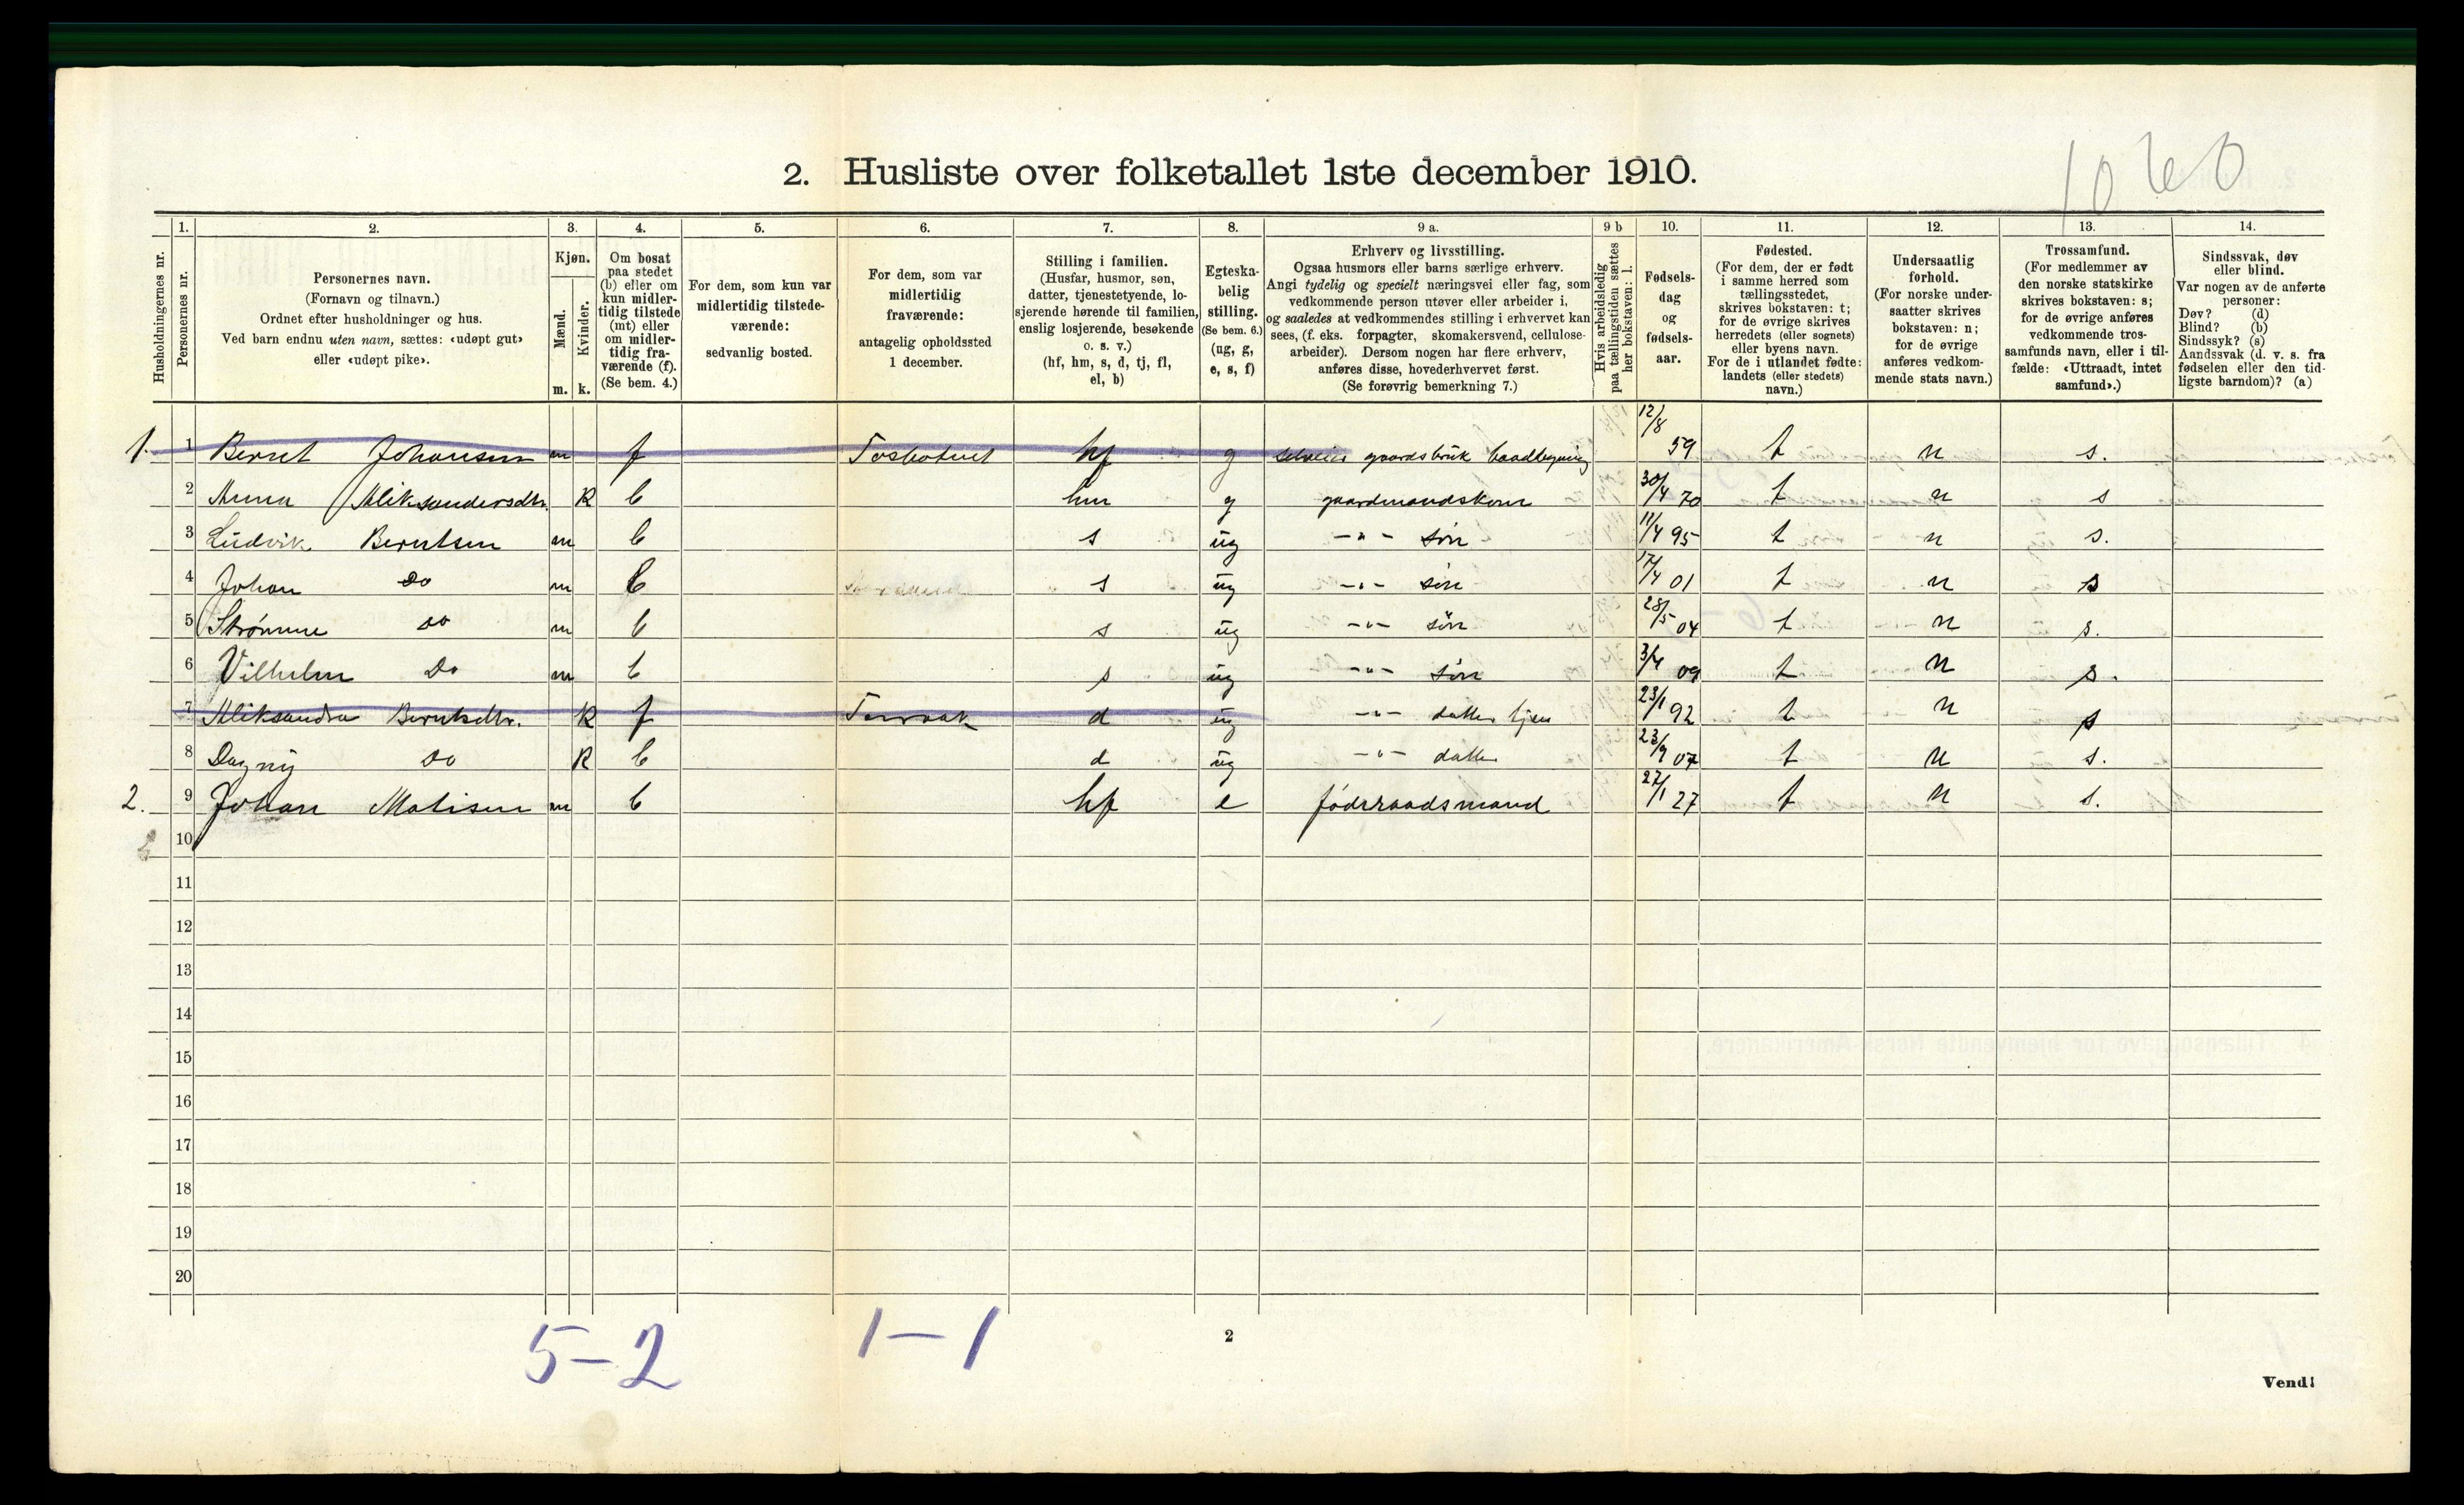 1060
2. Husliste over folketallet 1ste december 1910.
Husholdningernes nr.
1. Personernes nr.
2. Personernes navn. (Fornavn og tilnavn.) Ordnet efter husholdninger og hus. Ved barn endnu uten navn, sættes: «udøpt gut» eller «udøpt pike».
3. Kjøn. Mænd. m. Kvinder. k.
4. Om bosat paa stedet (b) eller om kun midler-tidig tilstede (mt) eller om midler-tidig fra-værende (f). (Se bem. 4.)
5. For dem, som kun var midlertidig tilstede-værende: sedvanlig bosted.
6. For dem, som var midlertidig fraværende: antagelig opholdssted 1 december.
7. Stilling i familien. (Husfar, husmor, søn, datter, tjenestetyende, lo-sjerende hørende til familien, enslig losjerende, besøkende o. s. v.) (hf, hm, s, d, tj, fl, el, b)
8. Egteska-belig stilling. (Se bem. 6.) (ug, g, e, s, f)
9 a. Erhverv og livsstilling. Ogsaa husmors eller barns særlige erhverv. Angi tydelig og specielt næringsvei eller fag, som vedkommende person utøver eller arbeider i, og saaledes at vedkommendes stilling i erhvervet kan sees, (f. eks. forpagter, skomakersvend, cellulose-arbeider). Dersom nogen har flere erhverv, anføres disse, hovederhvervet først. (Se forøvrig bemerkning 7.)
9 b Hvis arbeidsledig paa tællingstiden sættes her bokstaven: l.
10. Fødsels-dag og fødsels-aar.
11. Fødested. (For dem, der er født i samme herred som tællingsstedet, skrives bokstaven: t; for de øvrige skrives herredets (eller sognets) eller byens navn. For de i utlandet fødte: landets (eller stedets) navn.)
12. Undersaatlig forhold. (For norske under-saatter skrives bokstaven: n; for de øvrige anføres vedkom-mende stats navn.)
13. Trossamfund. (For medlemmer av den norske statskirke skrives bokstaven: s; for de øvrige anføres vedkommende tros-samfunds navn, eller i til-fælde: «Uttraadt, intet samfund».)
14. Sindssvak, døv eller blind. Var nogen av de anførte personer: Døv? (d) Blind? (b) Sindssyk? (s) Aandssvak (d. v. s. fra fødselen eller den tid-ligste barndom)? (a)
1. 1 Bernt Johansen m f Tosbotnet hf g selveier gaardsbruk baadbygning 12/8 59 t n s.
2 Anna Aliksandersdtr. K b hm g gaardmandskone 30/4 70 t n s
3 Ludvik Berntsen m b s ug -"- søn 11/4 95 t n s.
4 Johan Do m b s ug -"- søn 17/4 01 t n s
5 Strømme Do m b s ug -"- søn 28/5 04 t n s.
6 Vilhelm Do m b s ug -"- søn 3/4 09 t n s.
7 Aliksandra Berntsdtr. K f d ug -"- datter tjen 23/1 92 t n s
8 Dagny Do K b d ug -"- datter 23/9 07 t n s.
2. 9 Johan Matisen m b hf e føderaadsmand 27/1 27 t n s.
10
11
12
13
14
15
16
17
18
19
20
5-2 1-1
2
Vend!